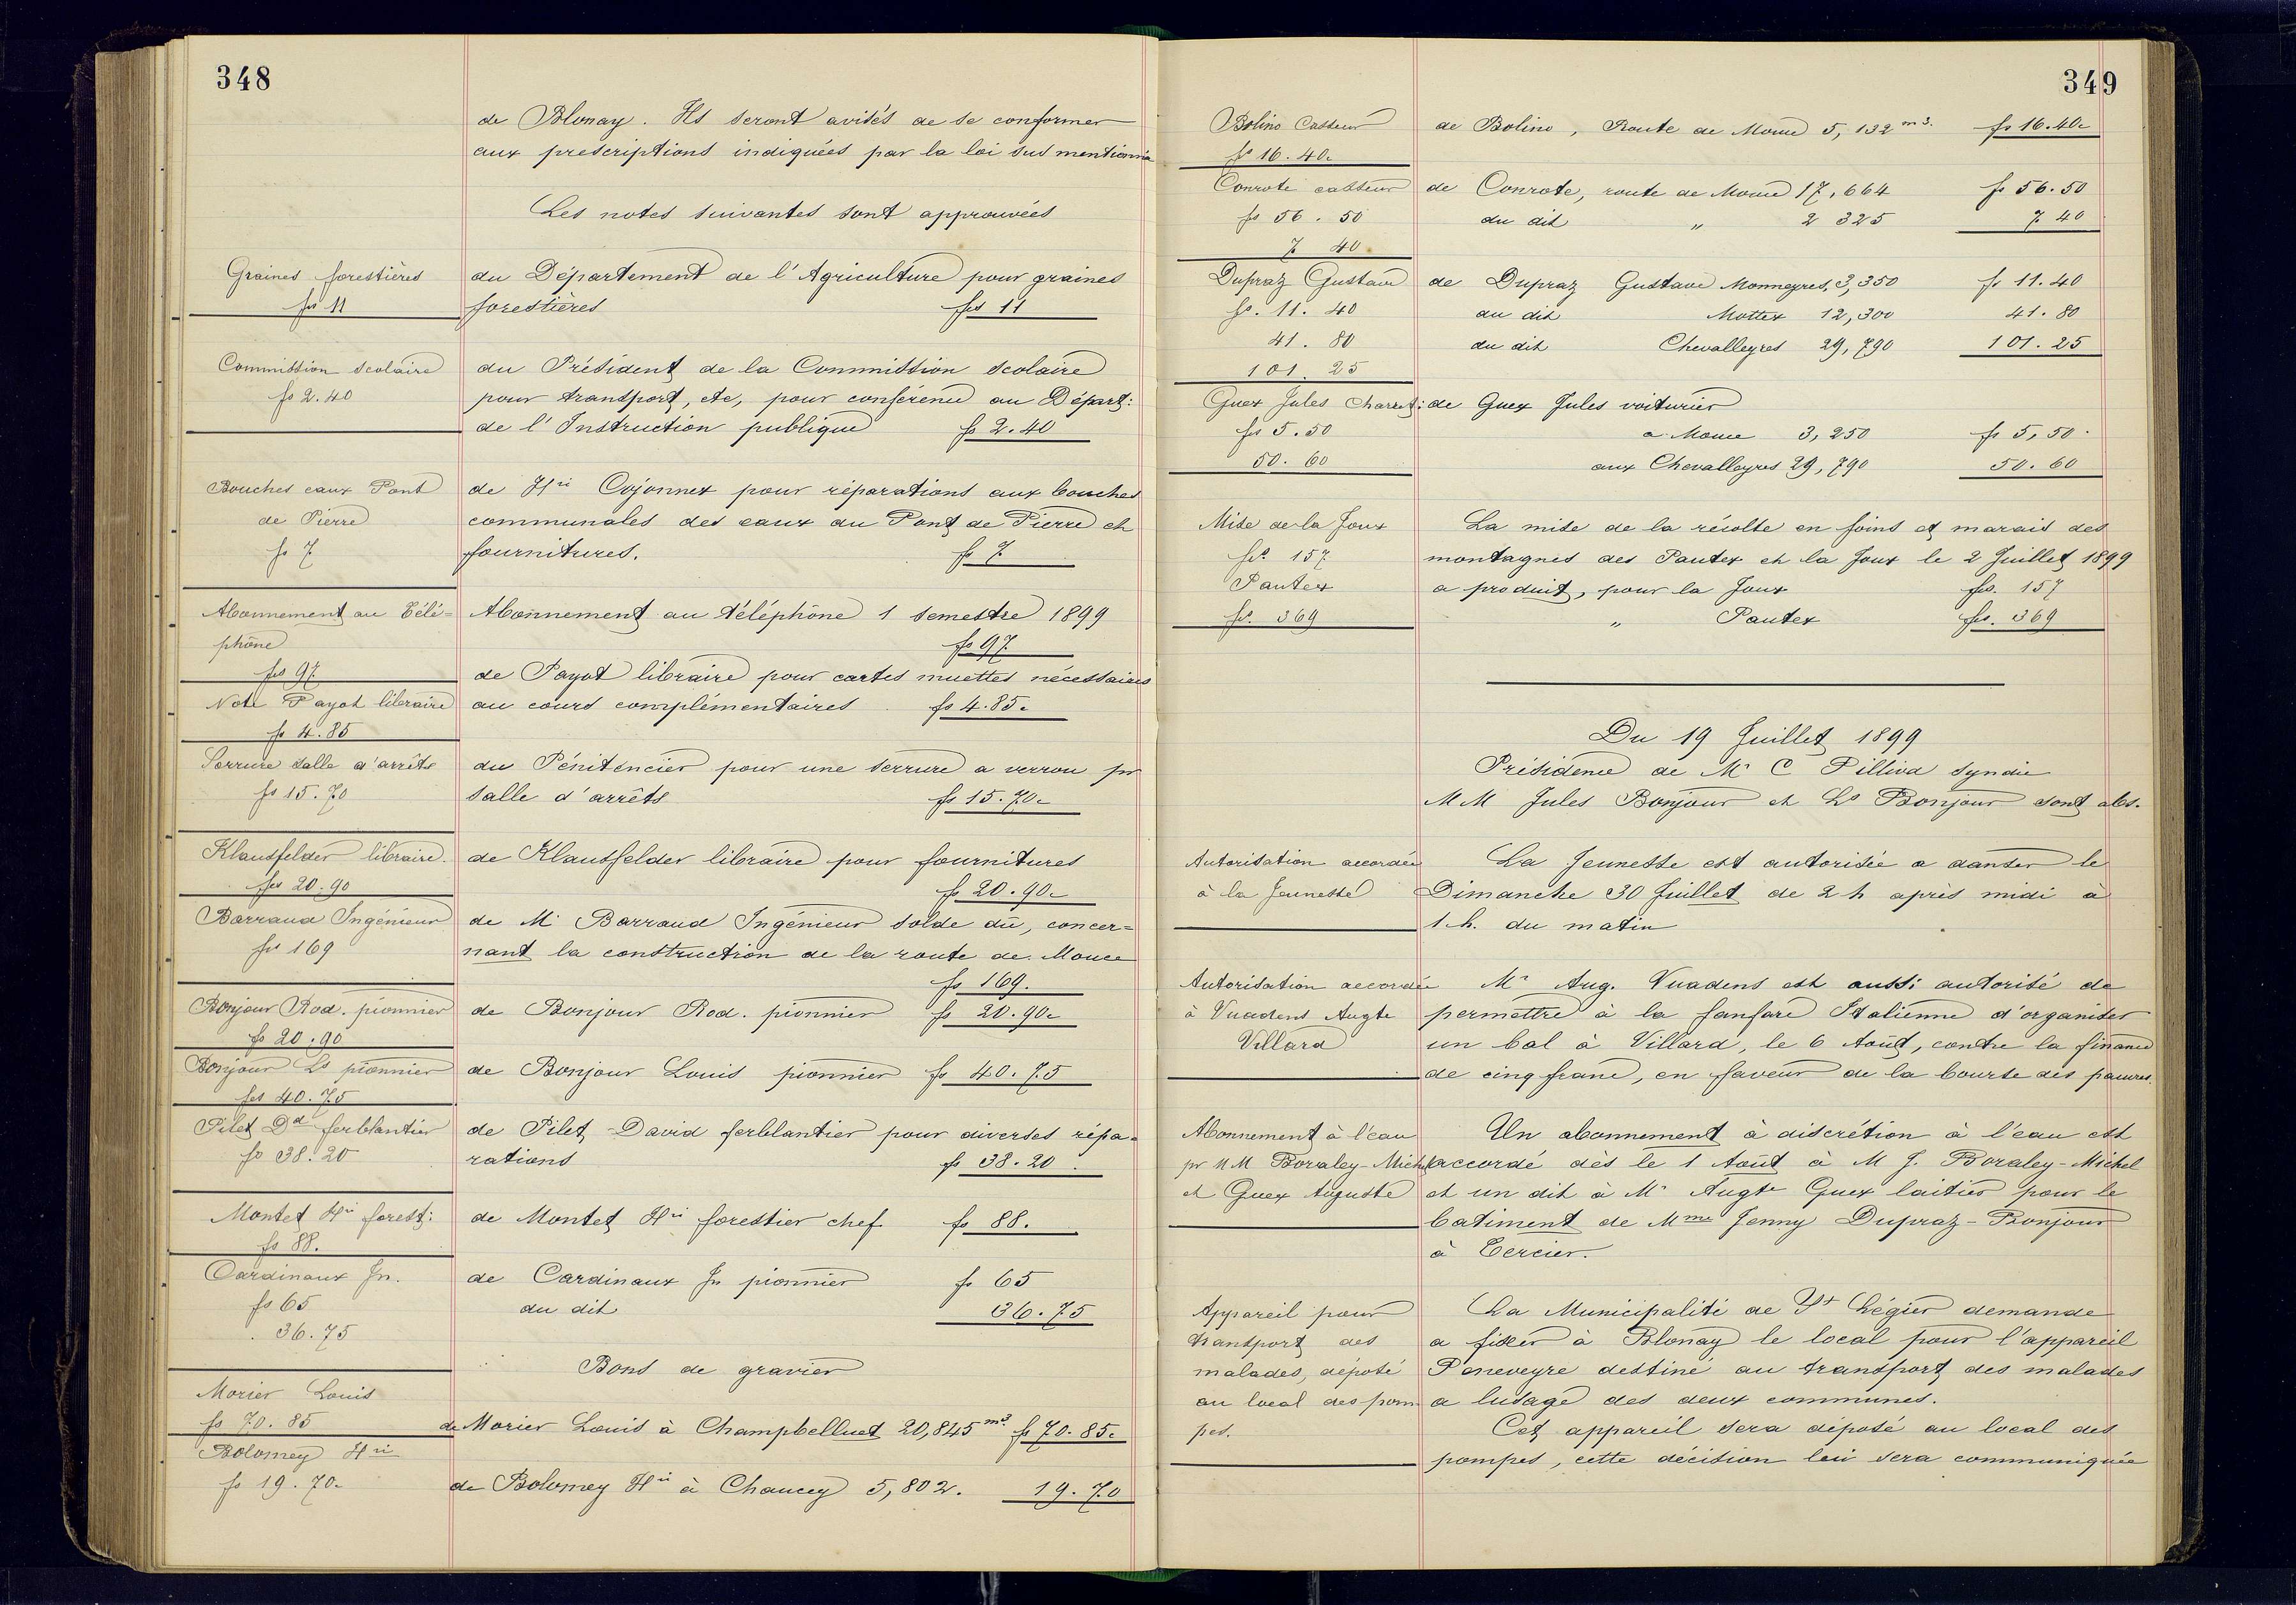 348
de Blonay. Ils seront avisés de se conformer
aux prescriptions indiquées par la loi sus mentionnée
Les notes suivantes sont approuvées
Graines forestières
fs 11
du Département de l'Agriculture pour graines
forestières fs 11
Commission scolaire
fs 2.40
du Président de la Commission scolaire
pour transport, etc, pour conférence au Départ:
de l'Instruction publique fs 2.40
Bouches eaux Pont
de Pierre
fs 7
de Hri Cojonnex pour réparations aux bouches
communales des eaux au Pont de Pierre et
fournitures. fs 7
Abonnement au Télé=
phône
fs 97
Abonnement au téléphône 1 semestre 1899
fs 97
Note Payot libraire
fs 4.85
de Payot libraire pour cartes muettes nécessaires
au cours complémentaires fs 4.85.
Serrure salle d'arrêts
fs 15.70
du Pénitencier pour une serrure a verrou pr
salle d'arrêts fs 15.70.
Klausfelder libraire.
fs 20.90
de Klausfelder libraire pour fournitures
fs 20.90.
Barraud Ingénieur
fs 169
de Mr Barraud Ingénieur solde dû, concer=
nant la construction de la route de Mouce
fs 169.
Bonjour Rod. pionnier
fs 20.90
de Bonjour Rod. pionnier fs 20.90.
Bonjour Ls pionnier
fs 40.75
de Bonjour Louis pionnier fs 40.75
Pilet Dd ferblantier
fs 38.20
de Pilet David ferblantier pour diverses répa=
rations fs 38.20.
Montet Hri forest:
fs 88.
de Montet Hri forestier chef fs 88.
Cardinaux Jn.
fs 65
36.75
de Cardinaux Jn pionnier fs 65
du dit 36.75
Bons de gravier
Morier Louis
fs 70.85
de Morier Louis à Champbelluet 20,845 m3 fs 70.85.
Bolomey Hri
fs 19.70.
de Bolomey Hri à Chaucey 5,802. 19.70
349
Bolino Casseur
fs 16.40.
de Bolino, Route de Mouce 5,132 m3. fs 16.40.
Conrote casseur
fs 56.50
7 40.
de Conrote, route de Mouce 17,664 fs 56.50
du dit " 2 325 7 40
Dupraz Gustave
fs. 11.40
41.80
101.25
de Dupraz Gustave Monneyres, 3,350 fs 11.40
du dit Mottex 12,300 41.80
du dit Chevalleyres 29,790 101.25
Guex Jules Charret:
fs 5.50
50.60
de Guex Jules voiturier
a Mouce 3,250 fs 5,50.
aux Chevalleyres 29,790 50.60
Mise de la Joux
fs. 157
Pautex
fs. 369
La mise de la récolte en foins et marais des
montagnes des Pautex et la Joux le 2 Juillet 1899
a produit, pour la Joux fs. 157
" Pautex fs. 369
Du 19 Juillet 1899
Présidence de Mr C Pilliod syndic
MM Jules Bonjour et Ls Bonjour sont abs.
Autorisation accordée
à la Jeunesse
La Jeunesse est autorisée a danser le
Dimanche 30 Juillet de 2 h après midi à
1 h. du matin
Autorisation accordée
à Vuadens Augte
Villard
Mr Aug. Vuadens est aussi autorisé de
permettre à la fanfare Italienne d'organiser
un bal à Villard, le 6 Août, contre la finance
de cinq franc, en faveur de la bourse des pauvres.
Abonnement à l'eau
pr MM Boraley-Michel
et Guex Auguste
Un abonnement à discrétion à l'eau est
accordé dès le 1 Août à M J. Boraley-Michel
et un dit à Mr Augte Guex laitier pour le
batiment de Mme Jenny Dupraz-Bonjour
à Tercier.
Appareil pour
transport des
malades, déposé
au local des pom
pes.
La Municipalité de St Légier demande
a fixer à Blonay le local pour l'appareil
Peneveyre destiné au transport des malades
a lusage des deux communes.
Cet appareil sera déposé au local des
pompes, cette décision leur sera communiquée